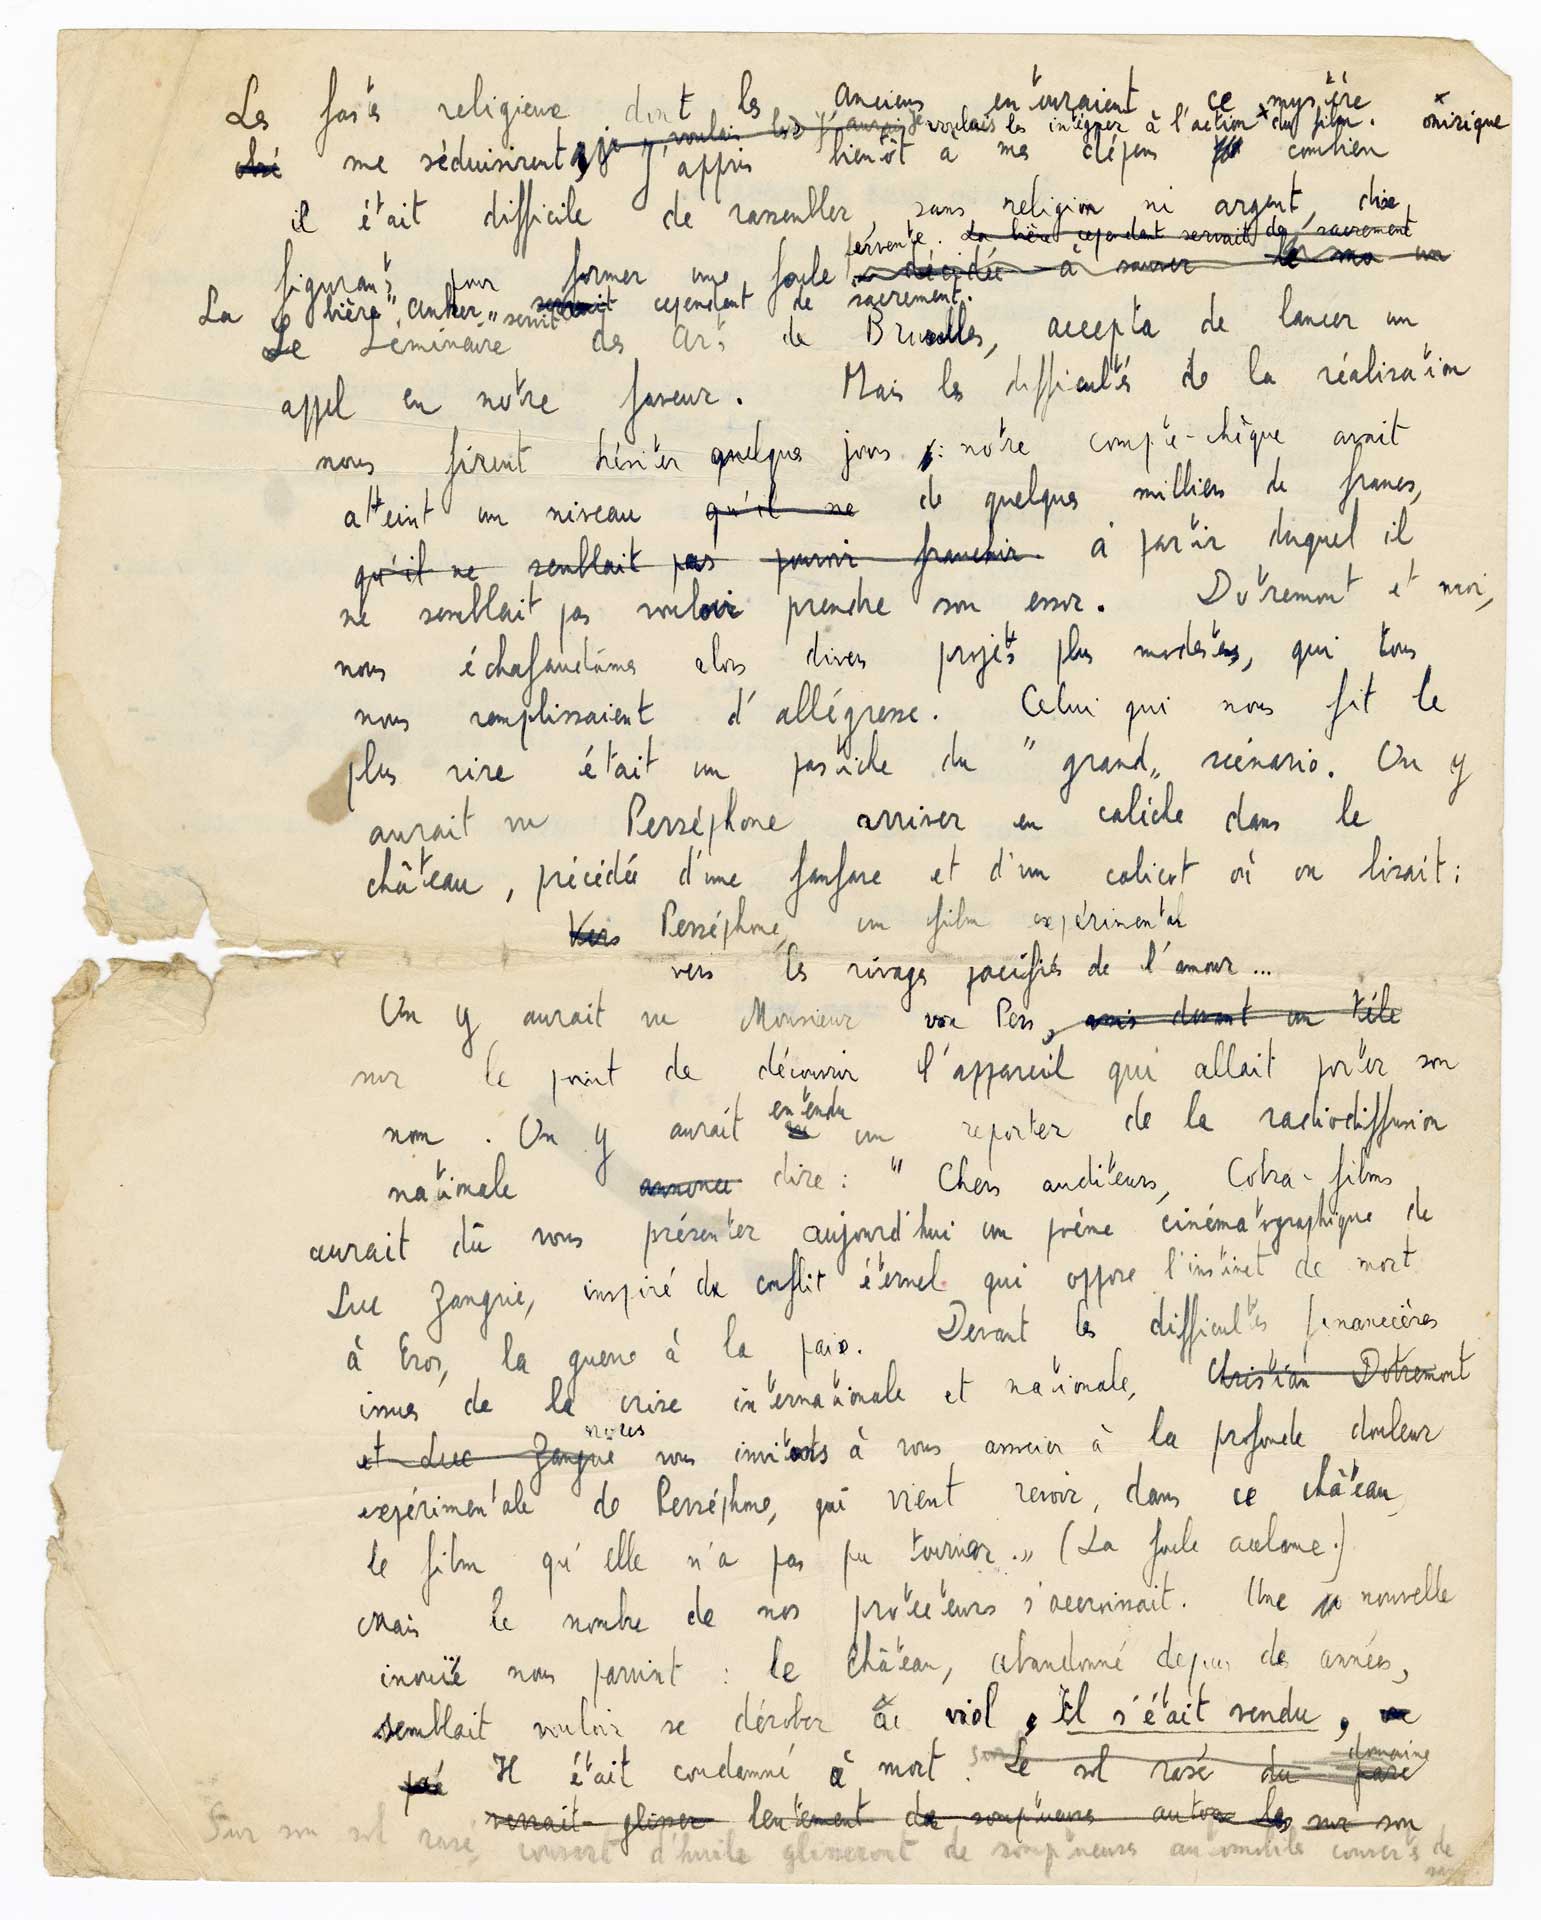 Les fastes religieux dont les Anciens entouraient ce mystère
je voulais les intégrer à l'action × du film. × onirique
me séduisirent, j'appris bientôt à mes dépens combien
il était difficile de rassembler, sans religion ni argent, dix
figurants pour former une foule fervente. La bière cependant servait de sacrement
décidée à sauver
La bière "Anker" servit cependant de sacrement.
Le Séminaire des Arts de Bruxelles, accepta de lancer un
appel en notre faveur. Mais les difficultés de la réalisation
nous firent hésiter quelques jours : notre compte-chèque avait
atteint un niveau qu'il ne de quelques milliers de francs,
qu'il ne semblait pas pouvoir franchir. à partir duquel il
ne semblait pas vouloir prendre son essor. Dotremont et moi,
nous échafaudâmes alors divers projets plus modestes, qui tous
nous remplissaient d'allégresse. Celui qui nous fit le
plus rire était un pastiche du "grand" scénario. On y
aurait vu Perséphone arriver en calèche dans le
château, précédée d'une fanfare et d'un calicot où on lisait :
Vers Perséphone, un film expérimental
vers les rivages pacifiés de l'amour...
On y aurait vu Monsieur von Pers, assis devant un télé
sur le point de découvrir l'appareil qui allait porter son
nom. On y aurait entendu un reporter de la radiodiffusion
nationale annoncer dire : "Chers auditeurs, Cobra-films
aurait dû vous présenter aujourd'hui un poème cinématographique de
Luc Zangrie, inspiré du conflit éternel qui oppose l'instinct de mort
à Eros, la guerre à la paix. Devant les difficultés financières
issues de la crise internationale et nationale, Christian Dotremont
et Luc Zangrie vous invitons à vous associer à la profonde douleur
expérimentale de Perséphone, qui vient revoir, dans ce château,
le film qu'elle n'a pas pu tourner." (La foule acclame.)
Mais le nombre de nos protecteurs s'accroissait. Une nouvelle
inouïe nous parvint : le château, abandonné depuis des années,
semblait vouloir se dérober au viol, Il s'était vendu,
Il était condamné à mort. Le sol rasé du parc domaine
verrait glisser lentement de somptueuses autos sur son
Sur son sol rasé, couvert d'huile glisseront de somptueuses automobiles couvertes de